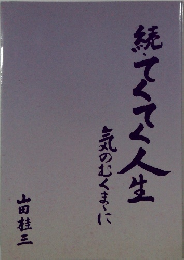 続・てくてく人生
気のむくまゝに
山田桂三